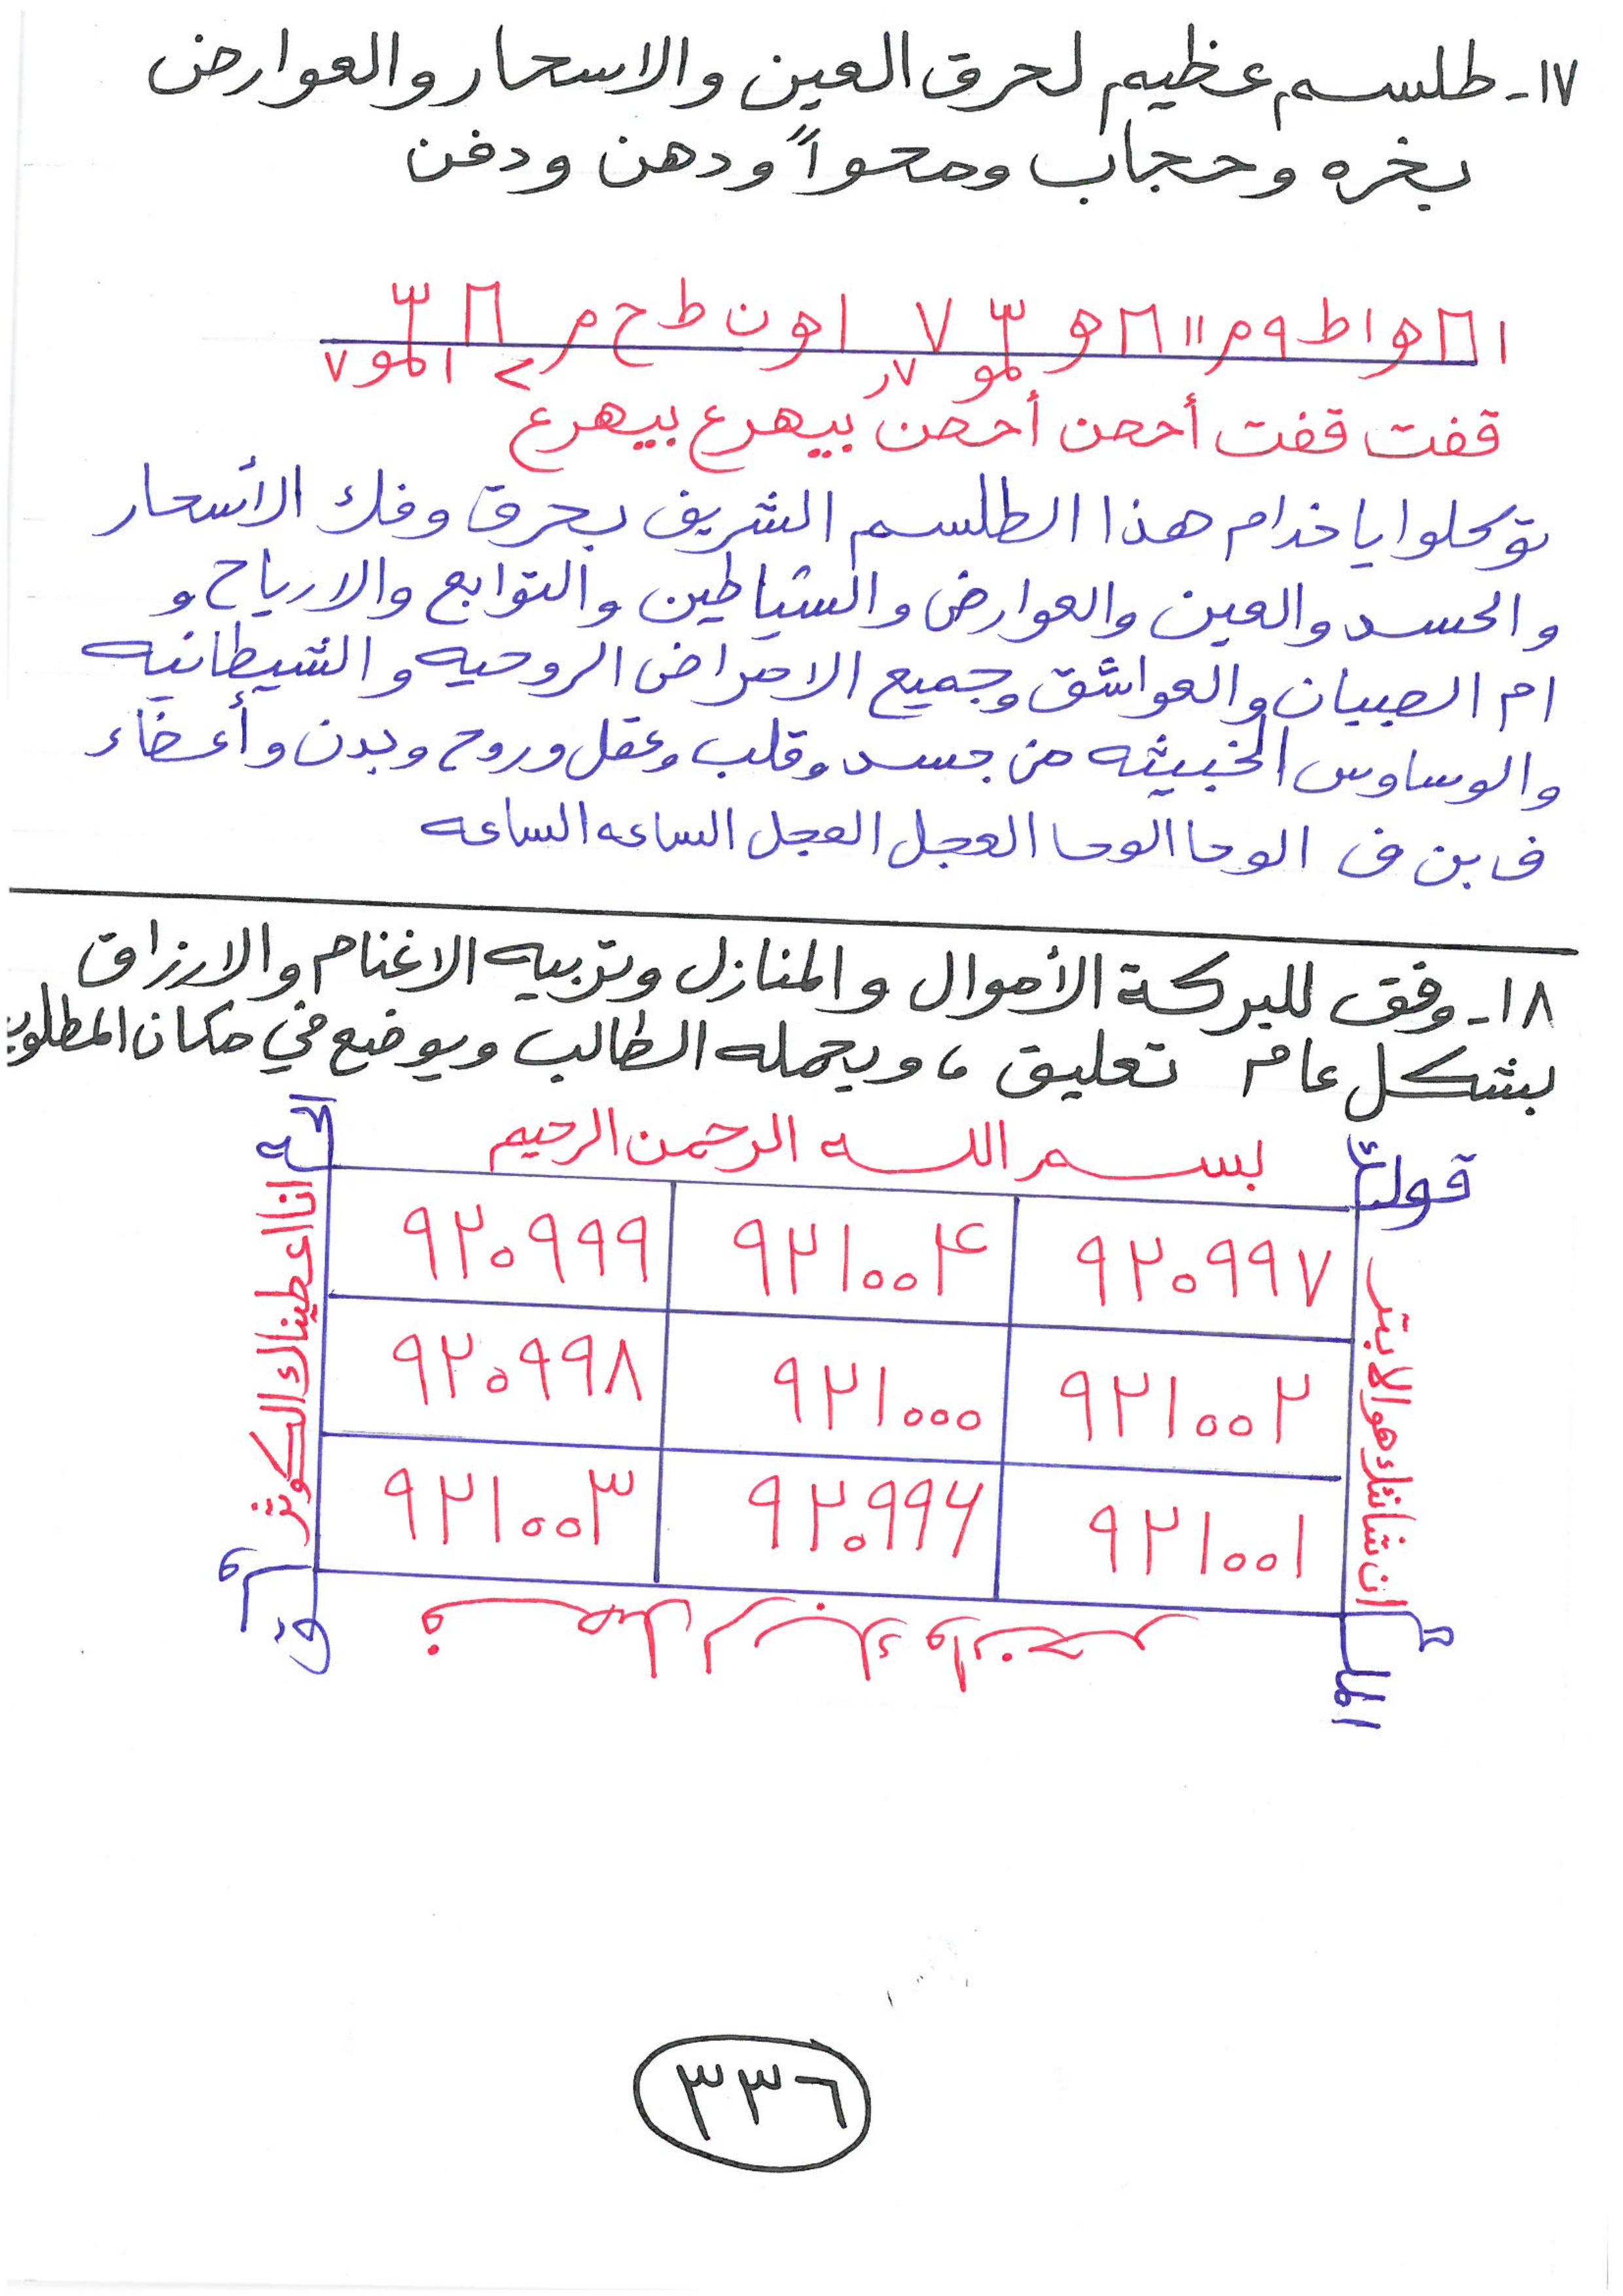 ١٧- طلسم عظيم لحرق العين والاسحار والعوارض
بخره وحجاب ومحواً ودهن ودفن
قفت قفت أححن أححن بيهرع بيهرع
توكلوا يا خدام هذا الطلسم الشريف بحرق وفك الأسحار
والحسد والعين والعوارض والشياطين والتوابع والارياح و
ام الصبيان والعواشق وجميع الامراض الروحيه والشيطانيه
والوساوس الخبيثه من جسد وقلب وعقل وروح وبدن وأعضاء
ف بن ف الوحا الوحا العجل العجل الساعه الساعه
١٨- وفق للبركة الأموال والمنازل وتربيه الاغنام والارزاق
بشكل عام تعليق، ويحمله الطالب ويوضع في مكان المطلوب
بسم الله الرحمن الرحيم
قوله
٩٢٠٩٩٧ ٩٢١٠٠٤ ٩٢٠٩٩٩
٩٢١٠٠٢ ٩٢١٠٠٠ ٩٢٠٩٩٨
٩٢١٠٠١ ٩٢٠٩٩٦ ٩٢١٠٠٣
انا اعطيناك الكوثر
فصل لربك وانحر
ان شانئك هو الابتر
٣٣٦